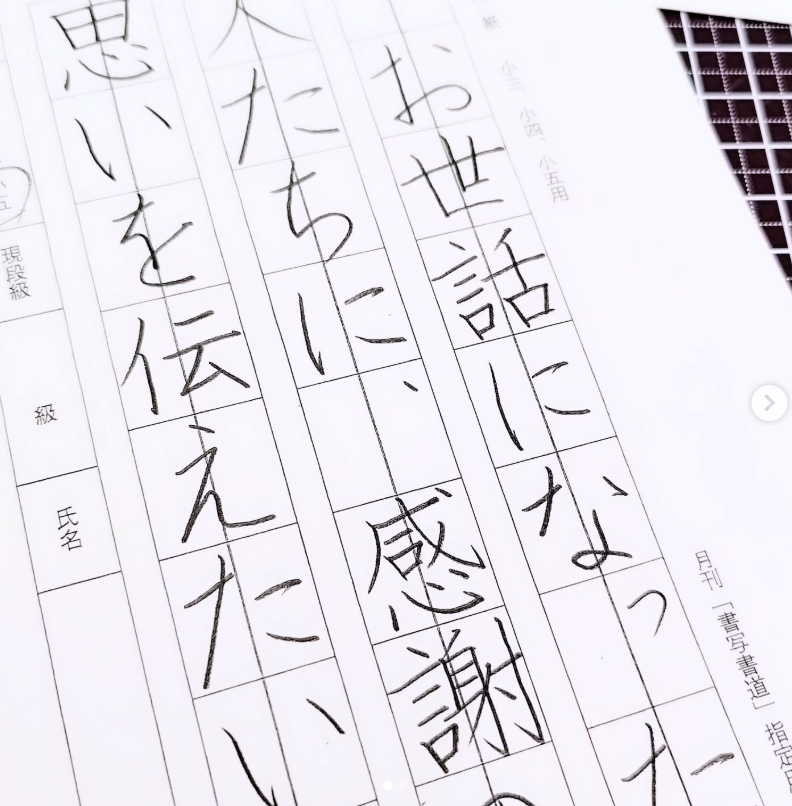 月刊「書写書道」指定用
紙 小三、小四、小五用
お世話になった
人たちに、感謝の
思いを伝えたい
五
現段級
級
氏名